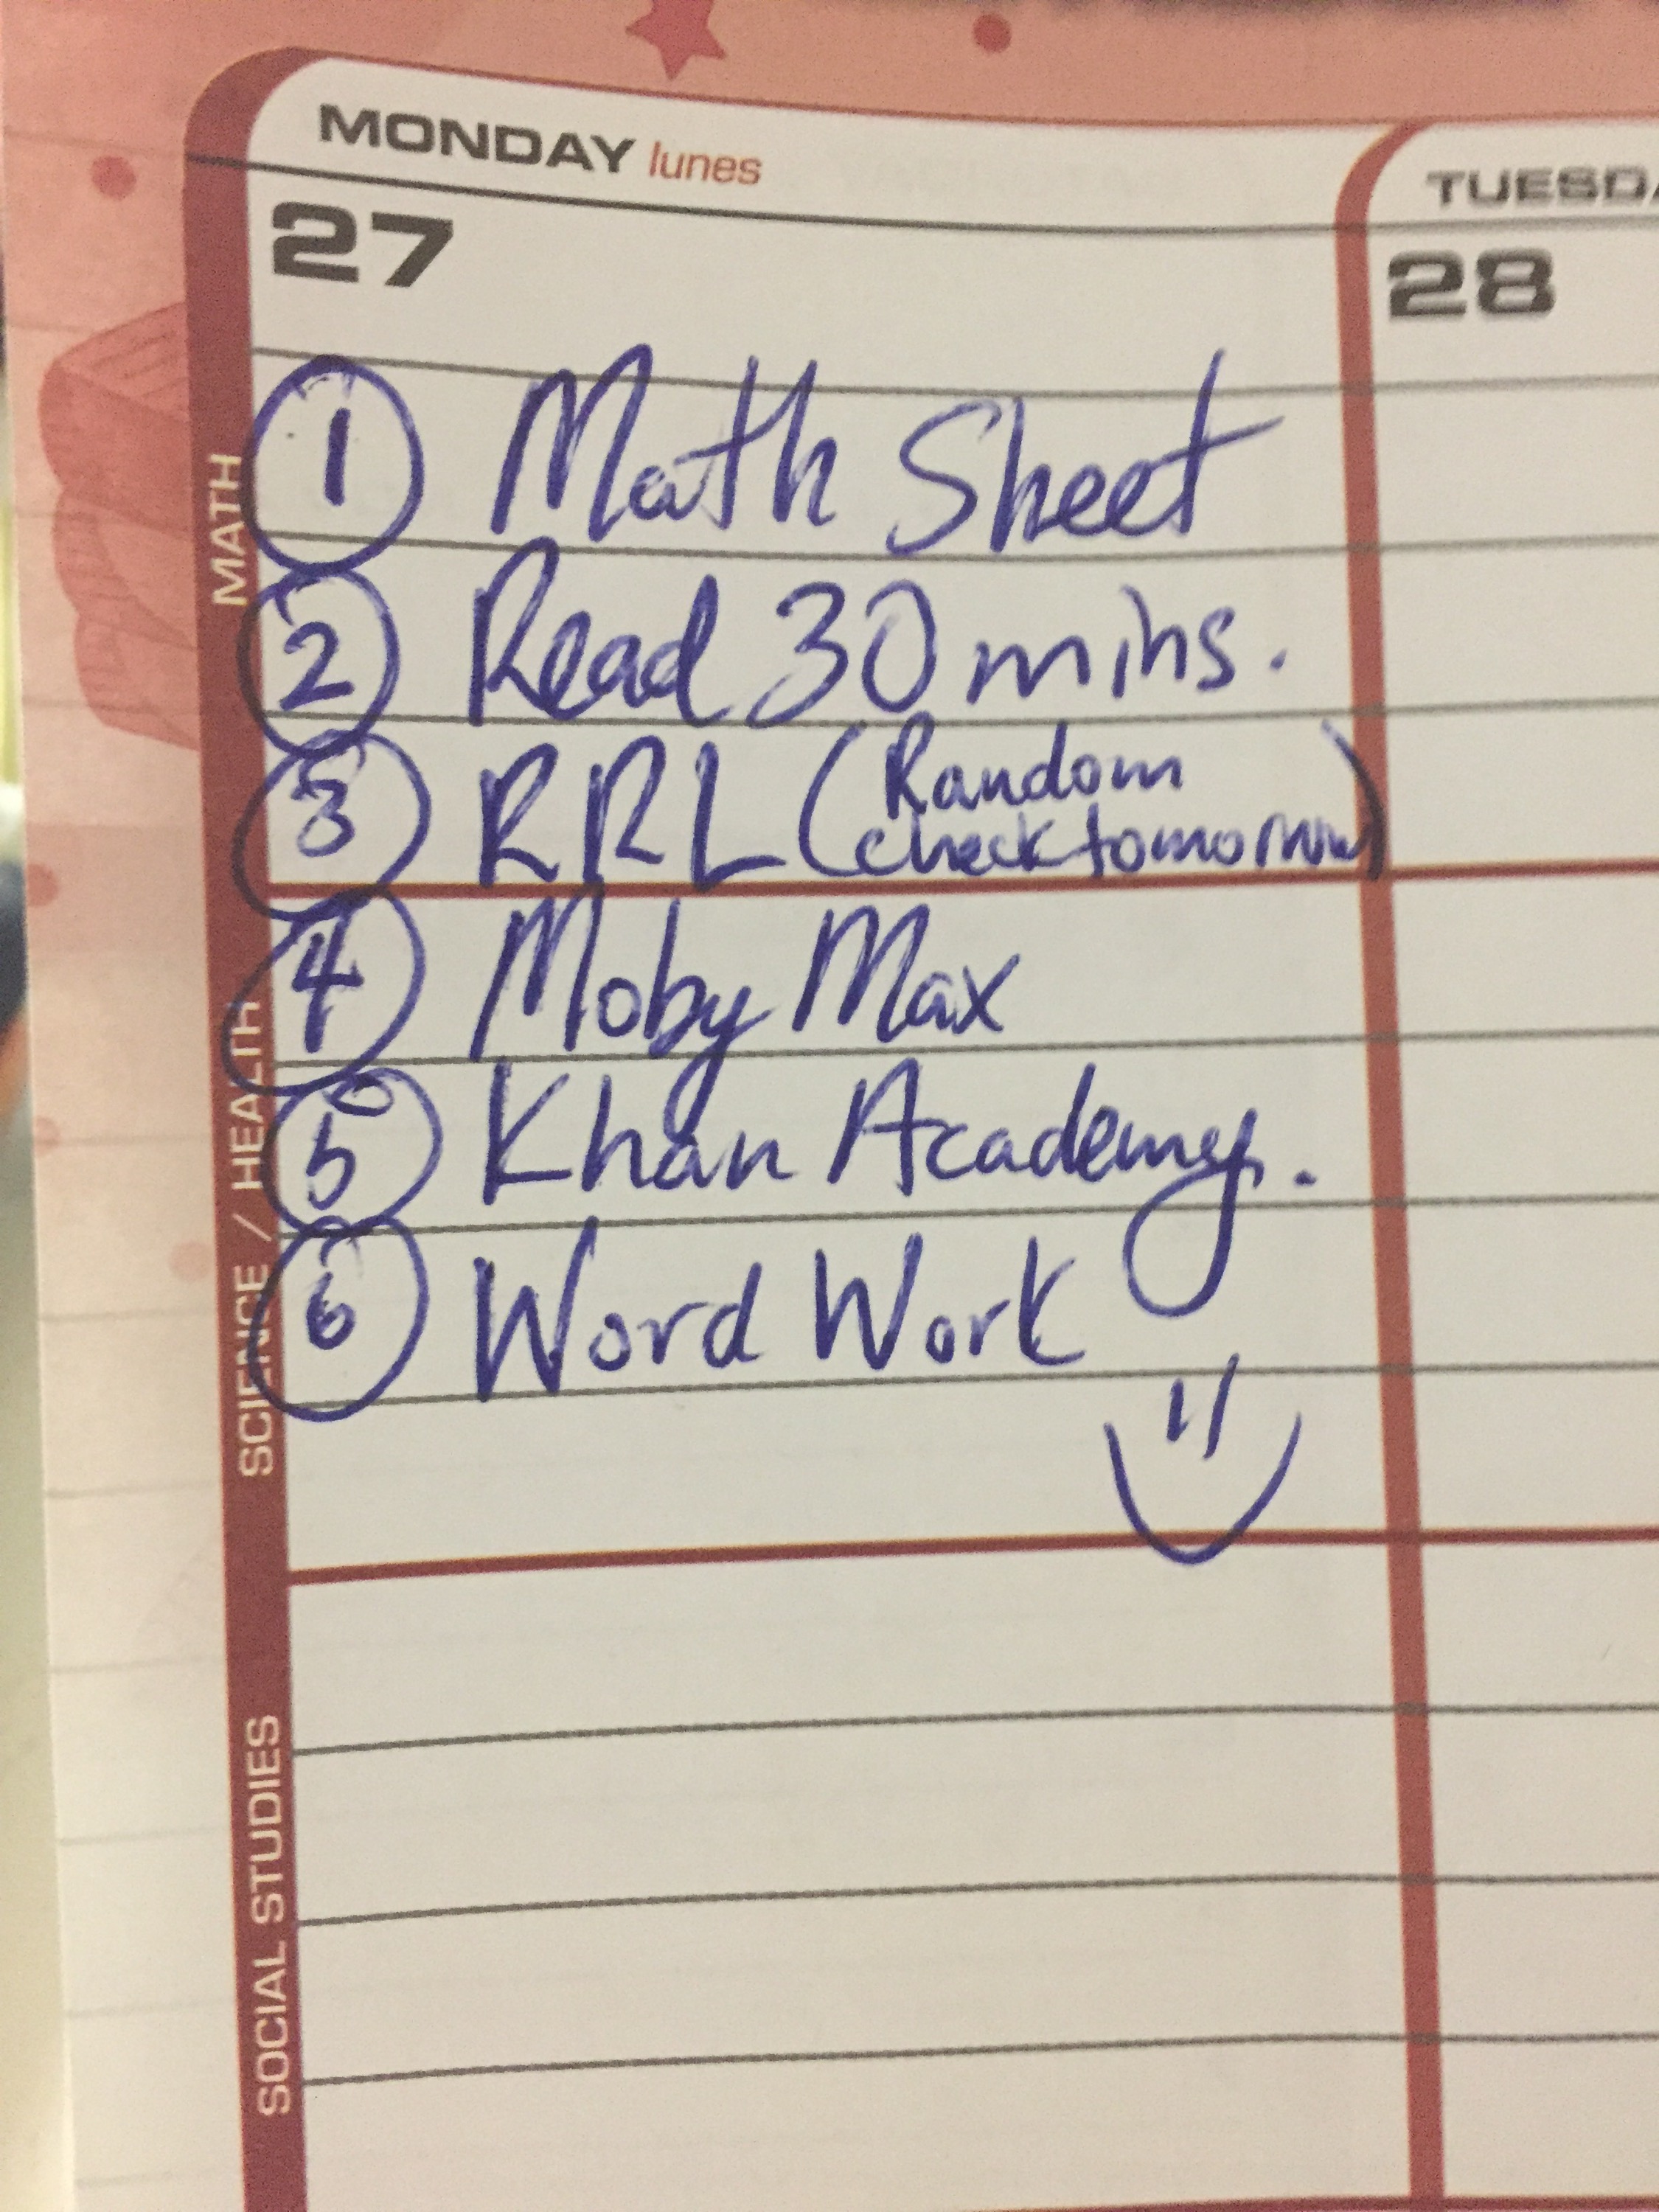 MONDAY lunes
TUESDA
27
28
MATH
1 Math Sheet
2 Read 30 mins.
3 RRL (Random
check tomorrow)
SCIENCE / HEALTH
4 Moby Max
5 Khan Academy.
6 Word Work
SOCIAL STUDIES